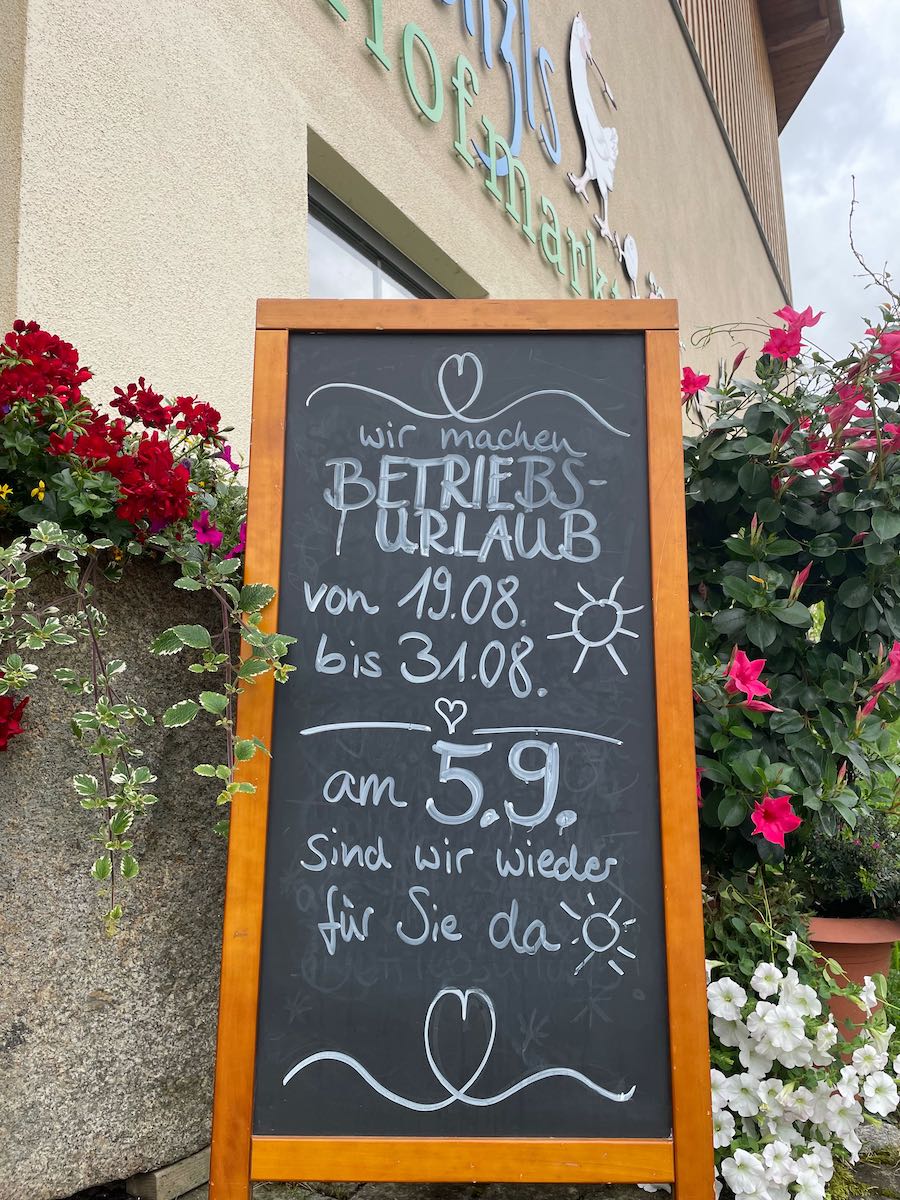 wir machen
BETRIEBS-
URLAUB
von 19.08.
bis 31.08.
am 5.9.
Sind wir wieder
für Sie da